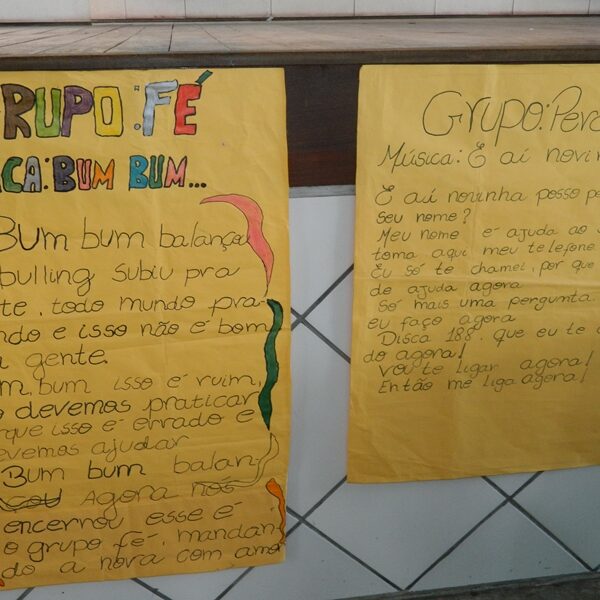 GRUPO: FÉ
BUM BUM...
Bum bum balançou
bulling subiu pra
te, todo mundo pra-
ndo e isso não é bom
a gente.
m, bum isso é ruim,
o devemos praticar
que isso é errado e
evemos ajudar
Bum bum balan-
çou Agora nós
encernou esse é
o grupo fé, mandan-
do a nova com amor
Grupo: Per
Música: E aí novin
E aí novinha posso pe
seu nome?
Meu nome é ajuda ao
toma aqui meu telefone
Eu só te chamei, por que
de ajuda agora
Só mais uma pergunta.
eu faço agora
Disca 188, que eu te
do agora!
vou te ligar agora!
Então me liga agora!